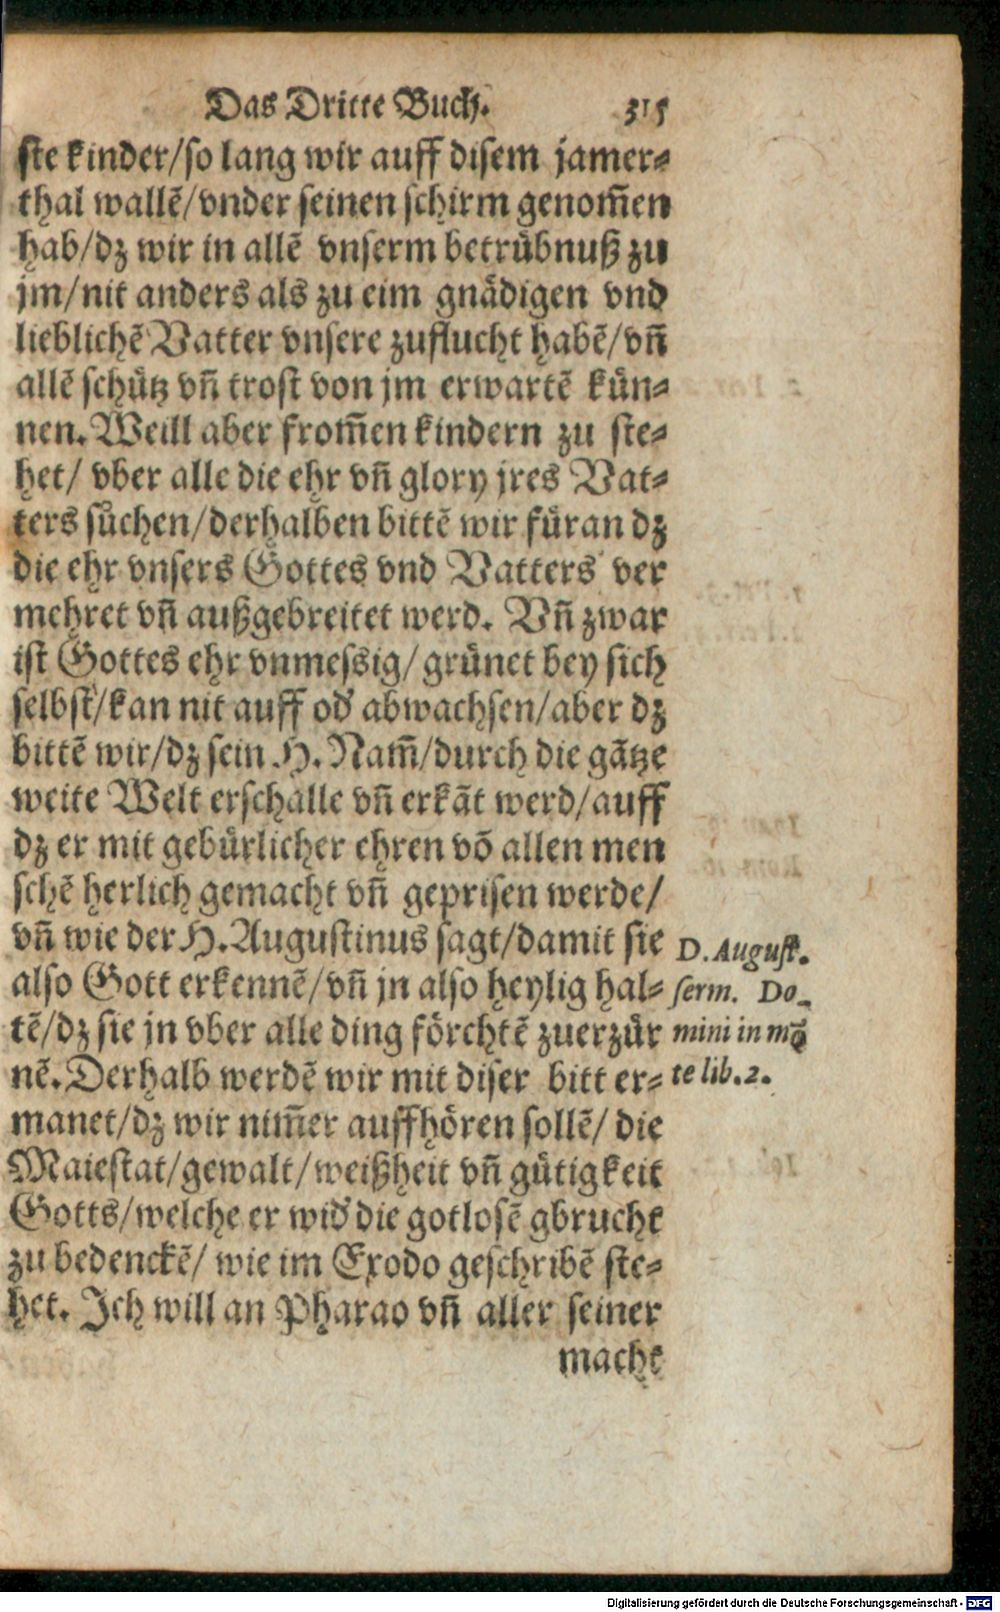 Das Dritte Buch. 315
ste kinder/so lang wir auff disem jamer⸗
thal wallẽ/vnder seinen schirm genom̃en
hab/dz wir in allẽ vnserm betrübnuß zu
jm/nit anders als zu eim gnädigen vnd
lieblichẽ Vatter vnsere zuflucht habẽ/vñ
allẽ schütz vñ trost von jm erwartẽ kün⸗
nen. Weill aber from̃en kindern zu ste⸗
het/ vber alle die ehr vñ glory jres Vat⸗
ters sůchen/derhalben bittẽ wir füran dz
die ehr vnsers Gottes vnd Vatters ver
mehret vñ außgebreitet werd. Vñ zwar
ist Gottes ehr vnmessig/ grünet bey sich
selbst/kan nit auff od' abwachsen/aber dz
bittẽ wir/dz sein H. Nam̃/durch die gãtze
weite Welt erschalle vñ erkãt werd/auff
dz er mit gebürlicher ehren võ allen men
schẽ herlich gemacht vñ geprisen werde/
vñ wie der H. Augustinus sagt/damit sie
also Gott erkennẽ/vñ jn also heylig hal⸗
tẽ/dz sie jn vber alle ding förchtẽ zuerzür
nẽ. Derhalb werdẽ wir mit diser bitt er⸗
manet/dz wir nim̃er auffhören sollẽ/ die
Maiestat/gewalt/weißheit vñ gütigkeit
Gotts/welche er wid' die gotlosẽ gbrucht
zu bedenckẽ/ wie im Exodo geschribẽ ste⸗
het. Ich will an Pharao vñ aller seiner
macht
D. August.
serm. Do-
mini in mõ
te lib. 2.
Digitalisierung gefördert durch die Deutsche Forschungsgemeinschaft - DFG